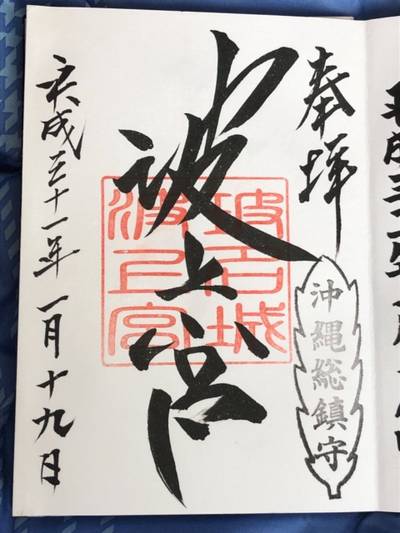 奉拝
沖縄総鎮守
波上宮
波上宮
平成三十一年一月十九日